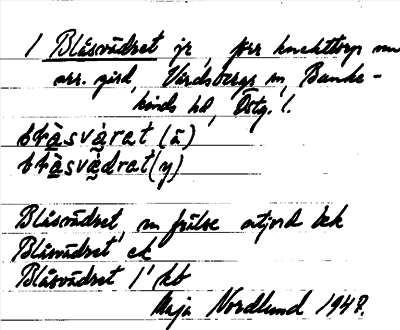 1 Blåsvädret jr, förr knekttorp nu
arr. gård, Vårdsbergs sn, Banke-
kinds hd, Östg. l.
blåsvärat (ä)
blåsvädrat (y)
Blåsvädret, sn frälse avjord bek
Blåsvädret ek
Blåsvädret 1 kb
Maja Nordlund 1947.